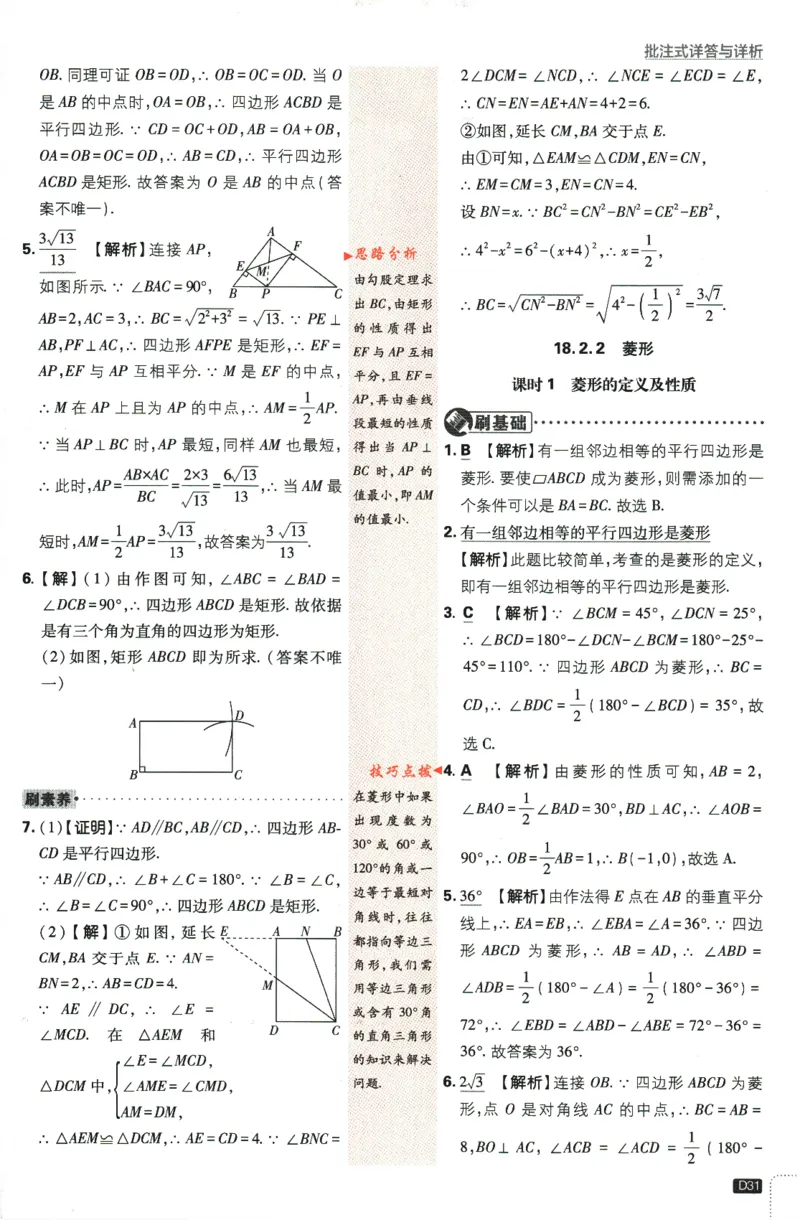 批注式详答与详析
OB. 同理可证 OB=OD,∴ OB=OC=OD. 当 O
是 AB 的中点时,OA=OB,∴ 四边形 ACBD 是
平行四边形. ∵ CD=OC+OD,AB=OA+OB,
OA=OB=OC=OD,∴ AB=CD,∴ 平行四边形
ACBD 是矩形. 故答案为 O 是 AB 的中点(答
案不唯一).
5. 3√13/13 【解析】连接 AP,
如图所示. ∵ ∠BAC=90°,
A
F
E
M
B P C
AB=2,AC=3,∴ BC=√(2²+3²)=√13. ∵ PE⊥
AB,PF⊥AC,∴ 四边形 AFPE 是矩形,∴ EF=
AP,EF 与 AP 互相平分. ∵ M 是 EF 的中点,
∴ M 在 AP 上且为 AP 的中点,∴ AM=1/2AP.
∵ 当 AP⊥BC 时,AP 最短,同样 AM 也最短,
∴ 此时,AP=AB×AC/BC=2×3/√13=6√13/13,∴ 当 AM 最
短时,AM=1/2AP=3√13/13,故答案为3√13/13.
6. 【解】(1) 由作图可知, ∠ABC = ∠BAD =
∠DCB=90°,∴ 四边形 ABCD 是矩形. 故依据
是有三个角为直角的四边形为矩形.
(2)如图,矩形 ABCD 即为所求. (答案不唯
一)
A D
B C
刷素养
7. (1)【证明】∵ AD∥BC,AB∥CD,∴ 四边形 AB-
CD 是平行四边形.
∵ AB∥CD,∴ ∠B+∠C=180°. ∵ ∠B=∠C,
∴ ∠B=∠C=90°,∴ 四边形 ABCD 是矩形.
(2)【解】①如图,延长
CM,BA 交于点 E. ∵ AN=
BN=2,∴ AB=CD=4.
∵ AE ∥ DC, ∴ ∠E =
∠MCD. 在 △AEM 和
E A N B
M
D C
△DCM 中,{∠E=∠MCD,
∠AME=∠CMD,
AM=DM,
∴ △AEM≌△DCM,∴ AE=CD=4. ∵ ∠BNC=
思路分析
由勾股定理求
出 BC,由矩形
的性质得出
EF 与 AP 互相
平分,且 EF=
AP,再由垂线
段最短的性质
得出当 AP⊥
BC 时, AP 的
值最小,即 AM
的值最小.
技巧点拨
在菱形中如果
出现度数为
30° 或 60° 或
120°的角或一
边等于最短对
角线时,往往
都指向等边三
角形,我们需
用等边三角形
或含有 30°角
的直角三角形
的知识来解决
问题.
2∠DCM=∠NCD,∴ ∠NCE=∠ECD=∠E,
∴ CN=EN=AE+AN=4+2=6.
②如图,延长 CM,BA 交于点 E.
由①可知,△EAM≌△CDM,EN=CN,
∴ EM=CM=3,EN=CN=4.
设 BN=x. ∵ BC²=CN²-BN²=CE²-EB²,
∴ 4²-x²=6²-(x+4)²,∴ x=1/2,
∴ BC=√(CN²-BN²)=√(4²-(1/2)²)=3√7/2.
18.2.2 菱形
课时1 菱形的定义及性质
刷基础
1. B 【解析】有一组邻边相等的平行四边形是
菱形. 要使▱ABCD 成为菱形,则需添加的一
个条件可以是 BA=BC. 故选 B.
2. 有一组邻边相等的平行四边形是菱形
【解析】此题比较简单,考查的是菱形的定义,
即有一组邻边相等的平行四边形是菱形.
3. C 【解析】∵ ∠BCM=45°, ∠DCN=25°,
∴ ∠BCD=180°-∠DCN-∠BCM=180°-25°-
45°=110°. ∵ 四边形 ABCD 为菱形,∴ BC=
CD,∴ ∠BDC=1/2(180°-∠BCD)=35°,故
选 C.
4. A 【解析】由菱形的性质可知, AB=2,
∠BAO=1/2∠BAD=30°,BD⊥AC,∴ ∠AOB=
90°,∴ OB=1/2AB=1,∴ B(-1,0),故选 A.
5. 36° 【解析】由作法得 E 点在 AB 的垂直平分
线上,∴ EA=EB,∴ ∠EBA=∠A=36°. ∵ 四边
形 ABCD 为菱形,∴ AB = AD, ∴ ∠ABD =
∠ADB=1/2(180°-∠A)=1/2(180°-36°)=
72°,∴ ∠EBD=∠ABD-∠ABE=72°-36°=
36°. 故答案为 36°.
6. 2√3 【解析】连接 OB. ∵ 四边形 ABCD 为菱
形,点 O 是对角线 AC 的中点,∴ BC=AB=
8,BO⊥ AC, ∠ACB = ∠ACD = 1/2(180° -
D31